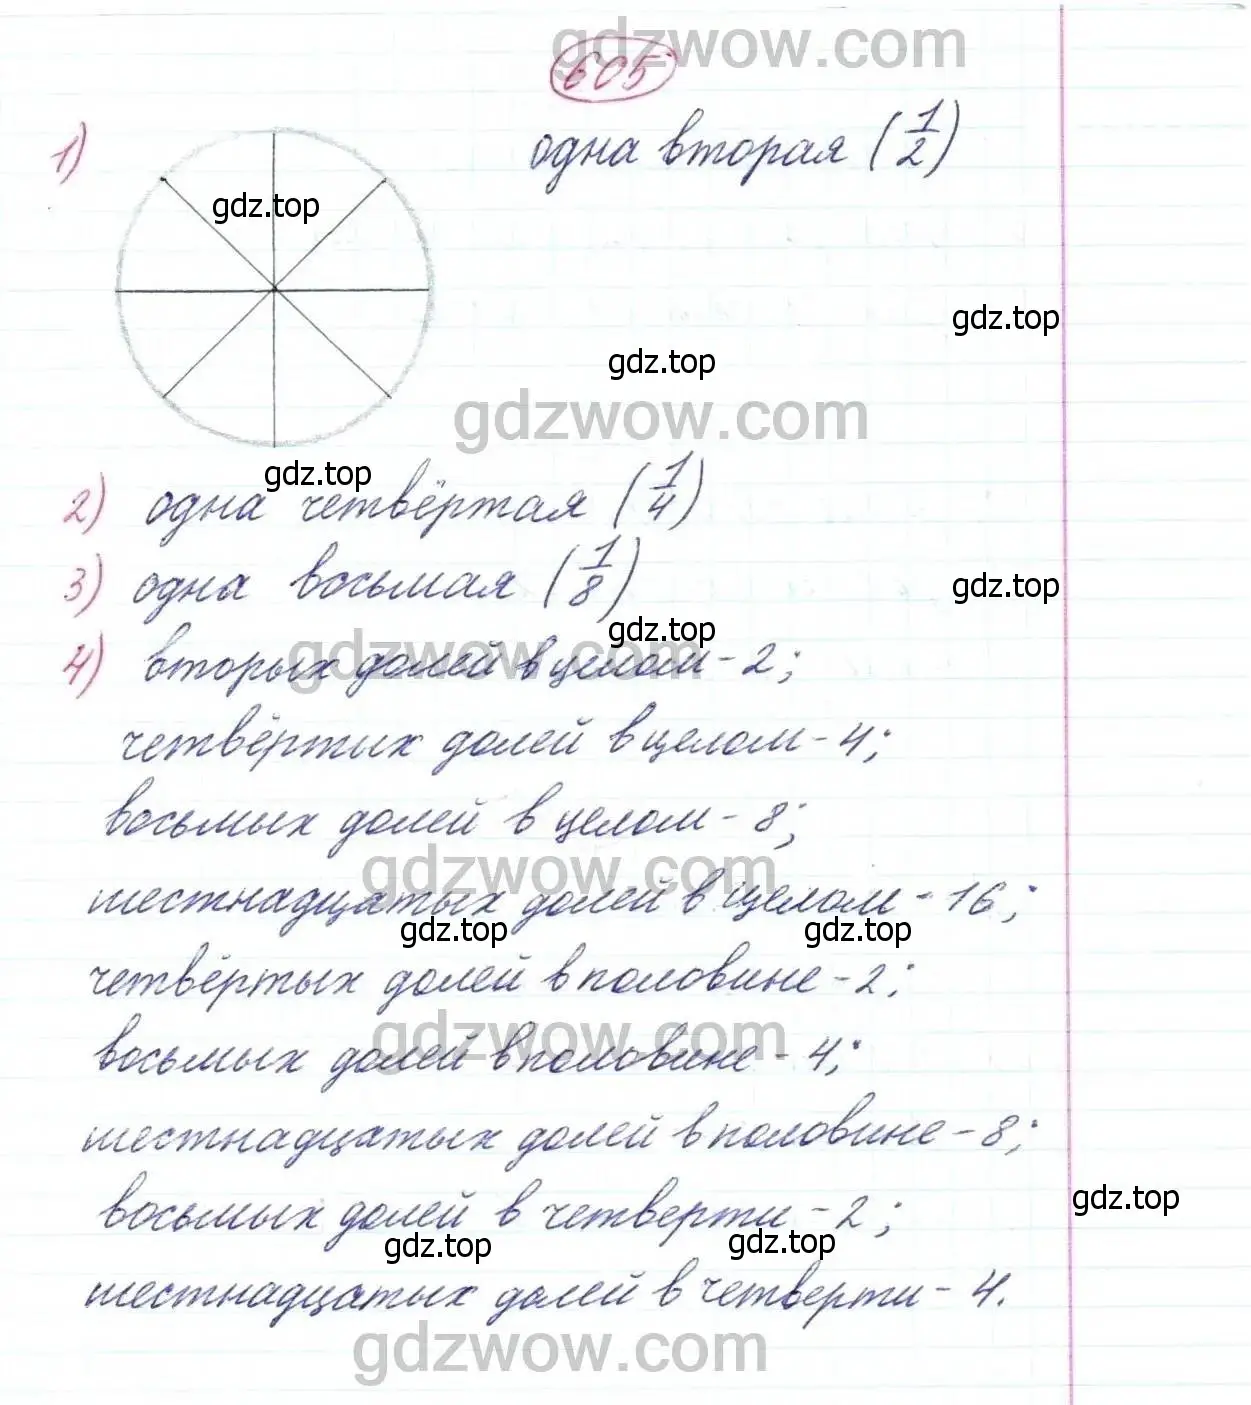 gdzwow.com
605
1) одна вторая (1/2)
gdz.top
gdz.top
gdz.top
gdzwow.com
gdz.top
2) одна четвёртая (1/4)
3) одна восьмая (1/8)
gdz.top
gdz.top
gdzwow.com
4) вторых долей в целом - 2;
четвёртых долей в целом - 4;
восьмых долей в целом - 8;
gdzwow.com
шестнадцатых долей в целом - 16;
gdz.top gdz.top
четвёртых долей в половине - 2;
gdzwow.com
восьмых долей в половине - 4;
шестнадцатых долей в половине - 8;
gdz.top
восьмых долей в четверти - 2;
gdz.top gdz.top
шестнадцатых долей в четверти - 4.
gdzwow.com